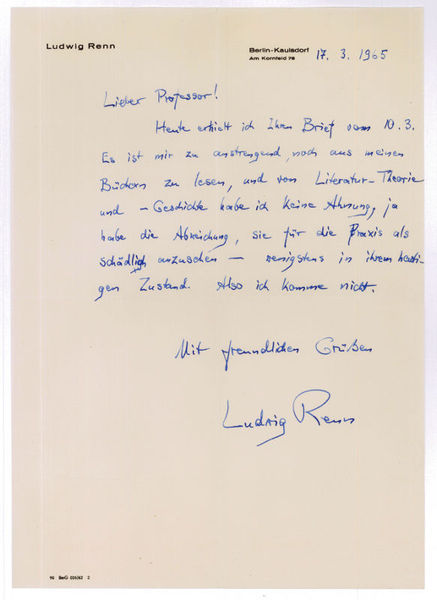 Ludwig Renn
Berlin-Kaulsdorf
Am Kornfeld 78
17. 3. 1965
Lieber Professor!
Heute erhielt ich Ihren Brief vom 10.3.
Es ist mir zu anstrengend, noch aus meinen
Büchern zu lesen, und von Literatur-Theorie
und -Geschichte habe ich keine Ahnung, ja
habe die Abneigung, sie für die Praxis als
schädlich anzusehen – wenigstens in ihrem heuti-
gen Zustand. Also ich komme nicht.
Mit freundlichen Grüßen
Ludwig Renn